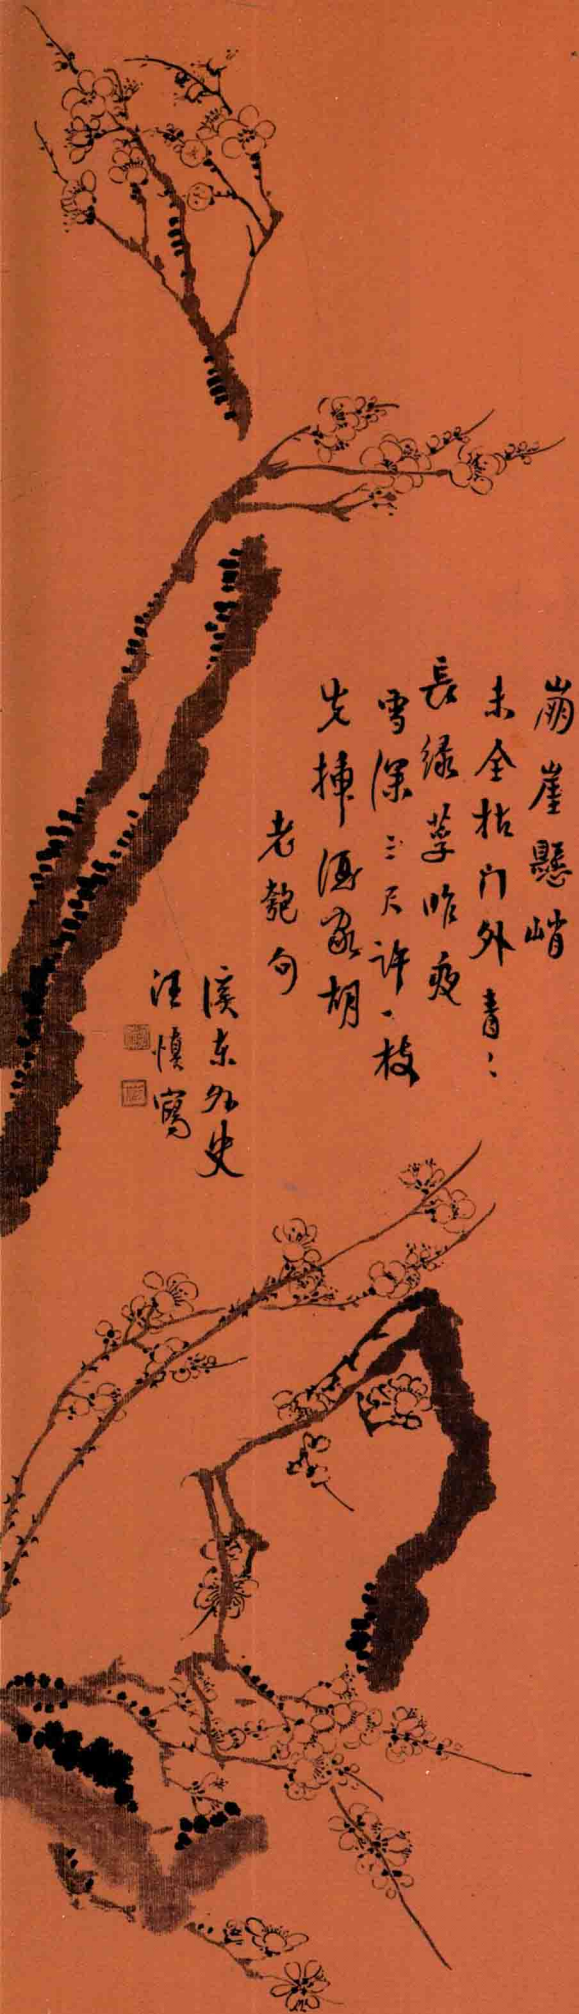 崩崖懸峭
未全枯门外青〻
長绿莩昨夜
雪深三尺许一枝
先揷酒家胡
老匏句
溪东外史
汪慎寫